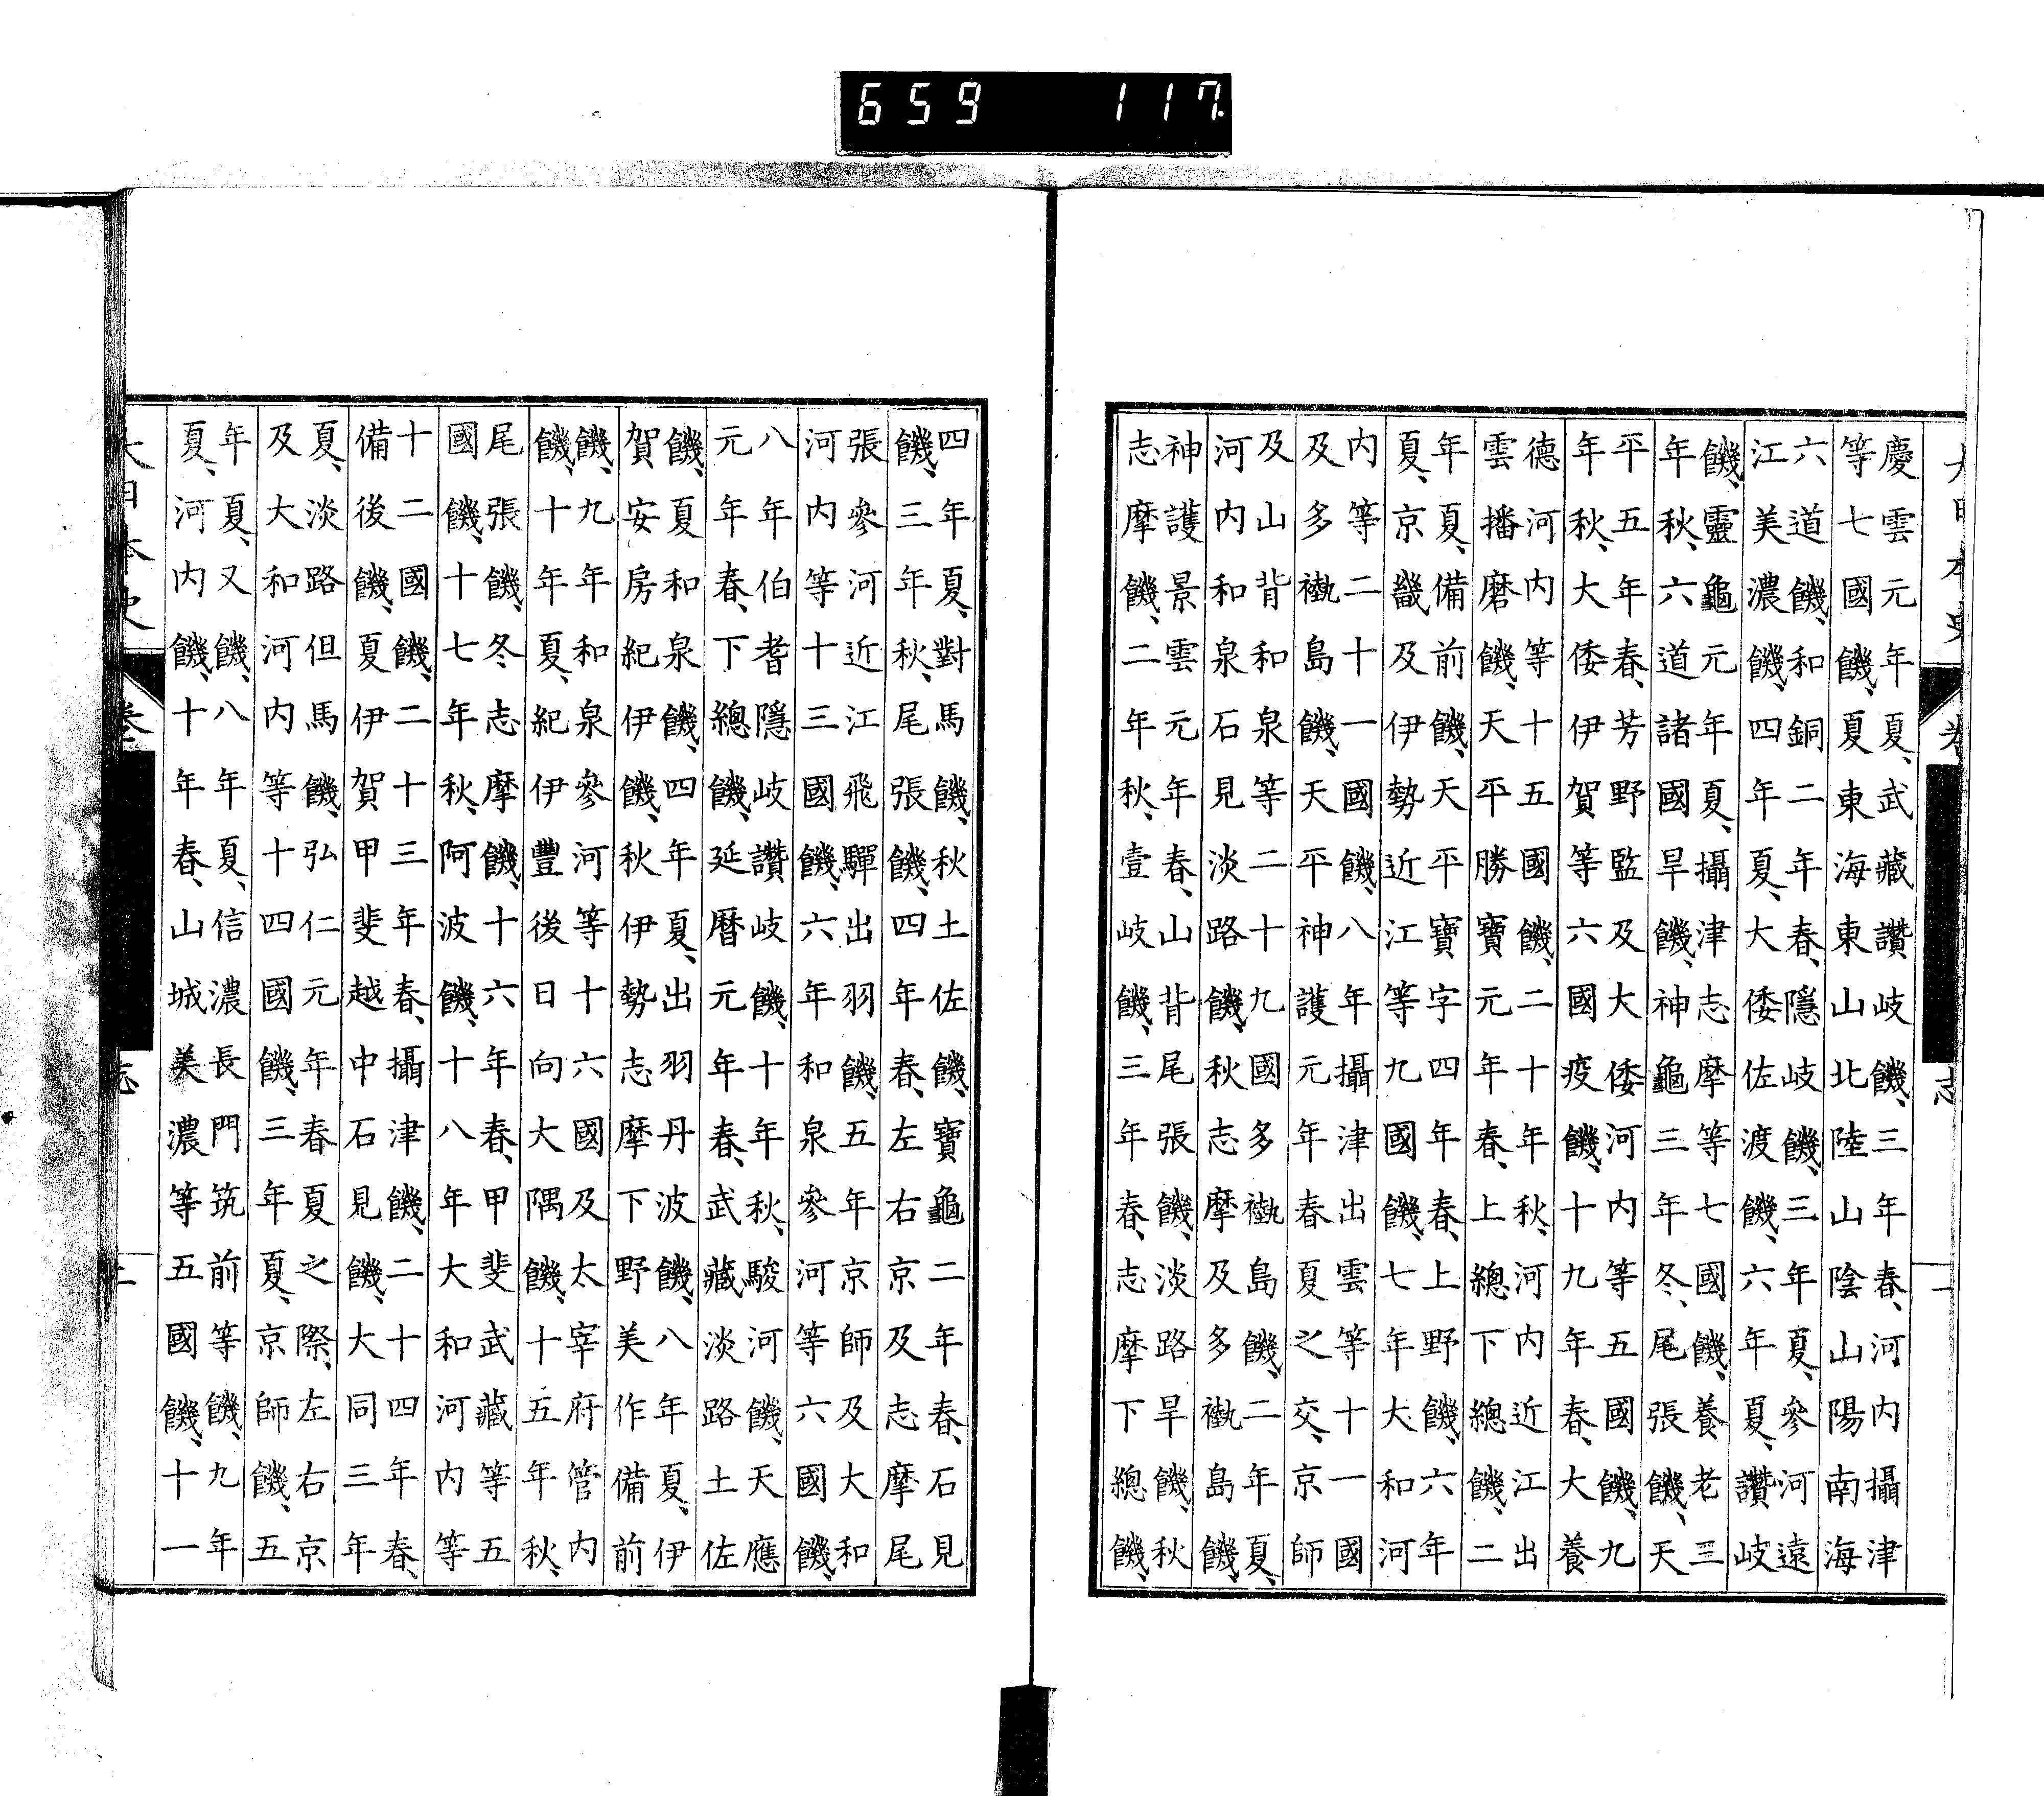 659 117
大日本史 卷 志
慶雲元年夏、武藏讚岐饑、三年春、河内攝津
等七國饑、夏東海東山北陸山陰山陽南海
六道饑、和銅二年春、隱岐饑、三年夏、參河遠
江美濃饑、四年夏、大倭佐渡饑、六年夏、讚岐
饑、靈龜元年夏、攝津志摩等七國饑、養老三
年秋、六道諸國旱饑、神龜三年冬、尾張饑、天
平五年春、芳野監及大倭河内等五國饑、九
年秋、大倭伊賀等六國疫饑、十九年春、大養
德河内等十五國饑、二十年秋、河内近江出
雲播磨饑、天平勝寶元年春、上總下總饑、二
年夏、備前饑、天平寶字四年春、上野饑、六年
夏、京畿及伊勢近江等九國饑、七年大和河
内等二十一國饑、八年攝津出雲等十一國
及多褹島饑、天平神護元年春夏之交、京師
及山背和泉等二十九國多褹島饑、二年夏、
河内和泉石見淡路饑、秋志摩及多褹島饑、
神護景雲元年春、山背尾張饑、淡路旱饑、秋
志摩饑、二年秋、壹岐饑、三年春、志摩下總饑、
四年夏、對馬饑、秋土佐饑、寶龜二年春、石見
饑、三年秋、尾張饑、四年春、左右京及志摩尾
張參河近江飛驒出羽饑、五年京師及大和
河内等十三國饑、六年和泉參河等六國饑、
八年伯耆隱岐讚岐饑、十年秋、駿河饑、天應
元年春、下總饑、延曆元年春、武藏淡路土佐
饑、夏和泉饑、四年夏、出羽丹波饑、八年夏、伊
賀安房紀伊饑、秋伊勢志摩下野美作備前
饑、九年和泉參河等十六國及太宰府管内
饑、十年夏、紀伊豐後日向大隅饑、十五年秋、
尾張饑、冬志摩饑、十六年春、甲斐武藏等五
國饑、十七年秋、阿波饑、十八年大和河内等
十二國饑、二十三年春、攝津饑、二十四年春、
備後饑、夏伊賀甲斐越中石見饑、大同三年
夏、淡路但馬饑、弘仁元年春夏之際、左右京
及大和河内等十四國饑、三年夏、京師饑、五
年夏、又饑、八年夏、信濃長門筑前等饑、九年
夏、河内饑、十年春、山城美濃等五國饑、十一
大日本史 卷 志